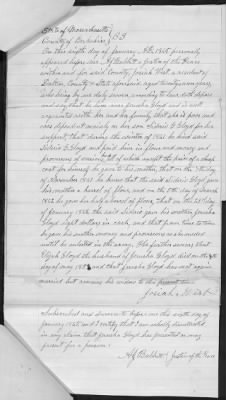 State of Massachusetts
County of Berkshire } SS
On this eighth day of January A.D. 1865 personally
appeared before me A J Babbitt a Justice of the Peace
within and for said County, Josiah a resident of
Dalton, County & State aforesaid, aged years
who being by me duly sworn, according to law, doth depose
and say that he knew Jerusha Floyd and is well
acquainted with her and her family, that she is poor and
was dependent mainly on her son Sidnie E Floyd for her
support, that during the winter of 1861 he hired said
Sidnie E Floyd and paid him in flour and money and
provisions of various, all of which except the price of a cheap
coat for himself he gave to his mother, that on the day
of November 1861 he knows that the said Sidnie Floyd gave
his mother a barrel of flour, and on the 8th day of March
1862 he gave her half a barrel of flour, that on the day of
January 1862 the said Sidnie gave his mother Jerusha
Floyd eight dollars in cash, and that from time to time
he gave his mother money and provisions as she needed
until he enlisted in the army. He further swears that
Elijah Floyd the husband of Jerusha Floyd died on the
day of May and that Jerusha Floyd has not again
married but remains his widow to the present time.
Josiah
Subscribed and sworn to before me this eighth day of
January 1865 and I certify that I am wholly disinterested
in any claim that Jerusha Floyd has presented or may
present for a pension.
A J Babbitt Justice of the Peace